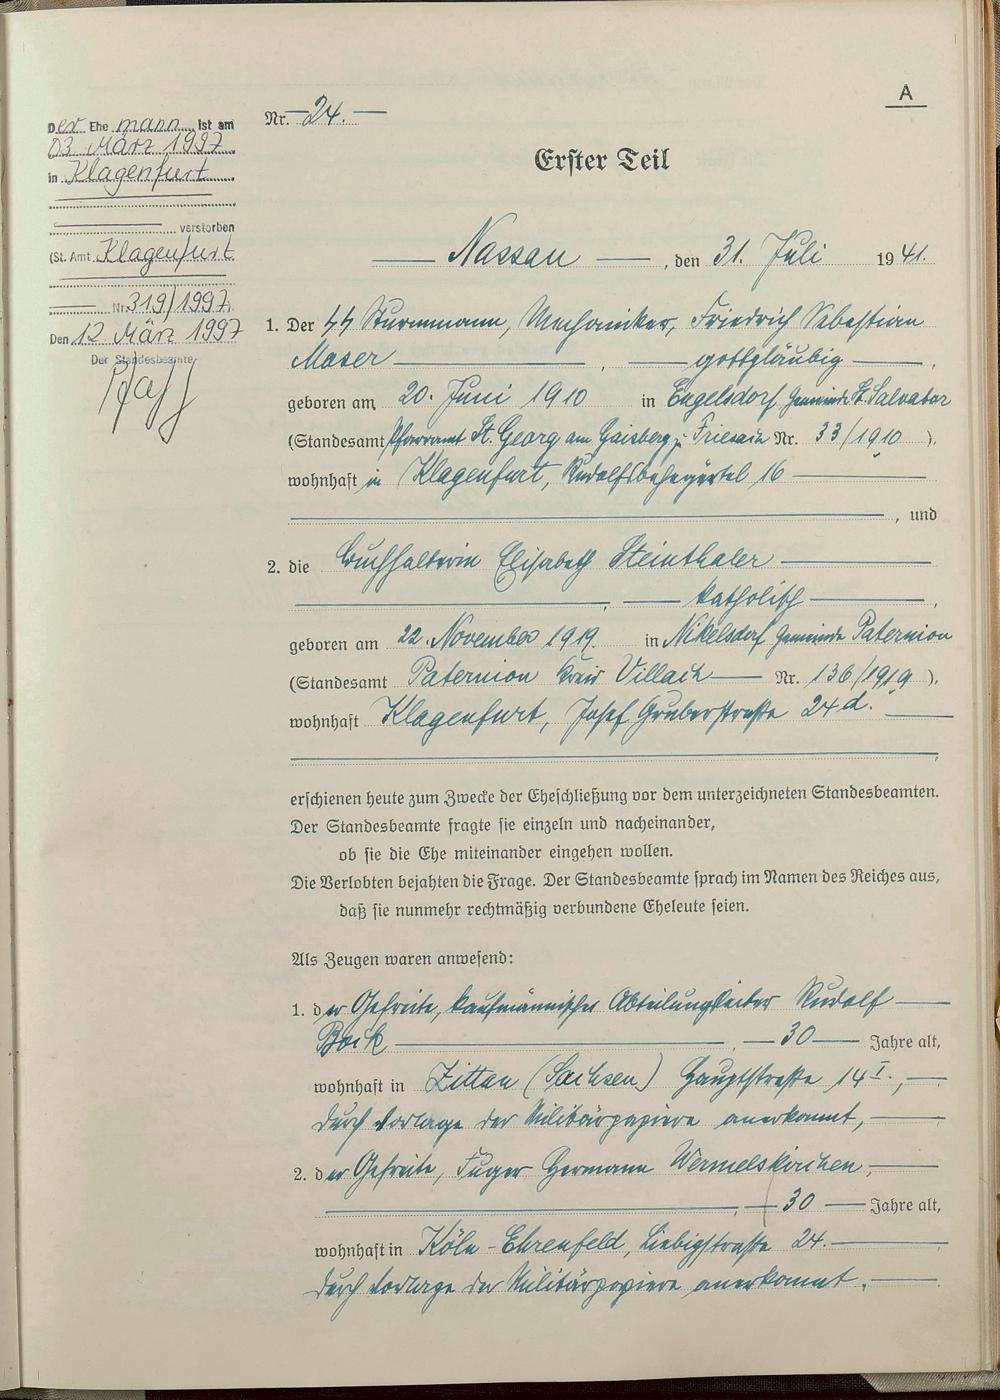 A
Nr. 24.
Erster Teil
Der Ehe mann ist am
03. März 1997
in Klagenfurt
verstorben
(St. Amt Klagenfurt
Nr. 319/1997.
Den 12 März 1997
Der Standesbeamte
Nassau, den 31. Juli 1941.
1. Der ᛋᛋ Sturmmann, Mechaniker, Friedrich Sebastian
Moser, gottgläubig,
geboren am 20. Juni 1910 in Engelsdorf Gemeinde St. Salvator
(Standesamt Pfarramt St. Georg am Gaisberg z. Friesach Nr. 33/1910),
wohnhaft in Klagenfurt, 16
, und
2. die Buchhalterin Elisabeth Steinthaler
, katholisch,
geboren am 22. November 1919. in Nikelsdorf Gemeinde Paternion
(Standesamt Paternion Kreis Villach Nr. 136/1919),
wohnhaft Klagenfurt, Josef Gruberstraße 24 d.
erschienen heute zum Zwecke der Eheschließung vor dem unterzeichneten Standesbeamten.
Der Standesbeamte fragte sie einzeln und nacheinander,
ob sie die Ehe miteinander eingehen wollen.
Die Verlobten bejahten die Frage. Der Standesbeamte sprach im Namen des Reiches aus,
daß sie nunmehr rechtmäßig verbundene Eheleute seien.
Als Zeugen waren anwesend:
1. der Gefreite, kaufmännischer Abteilungsleiter Rudolf
Bock, 30 Jahre alt,
wohnhaft in Zittau (Sachsen) Hauptstraße 14 I.,
durch Vorlage der Militärpapiere anerkannt,
2. der Gefreite, Fuger Hermann Wermelskirchen,
, 30 Jahre alt,
wohnhaft in Köln-Ehrenfeld, Liebigstraße 24.
durch Vorlage der Militärpapiere anerkannt.